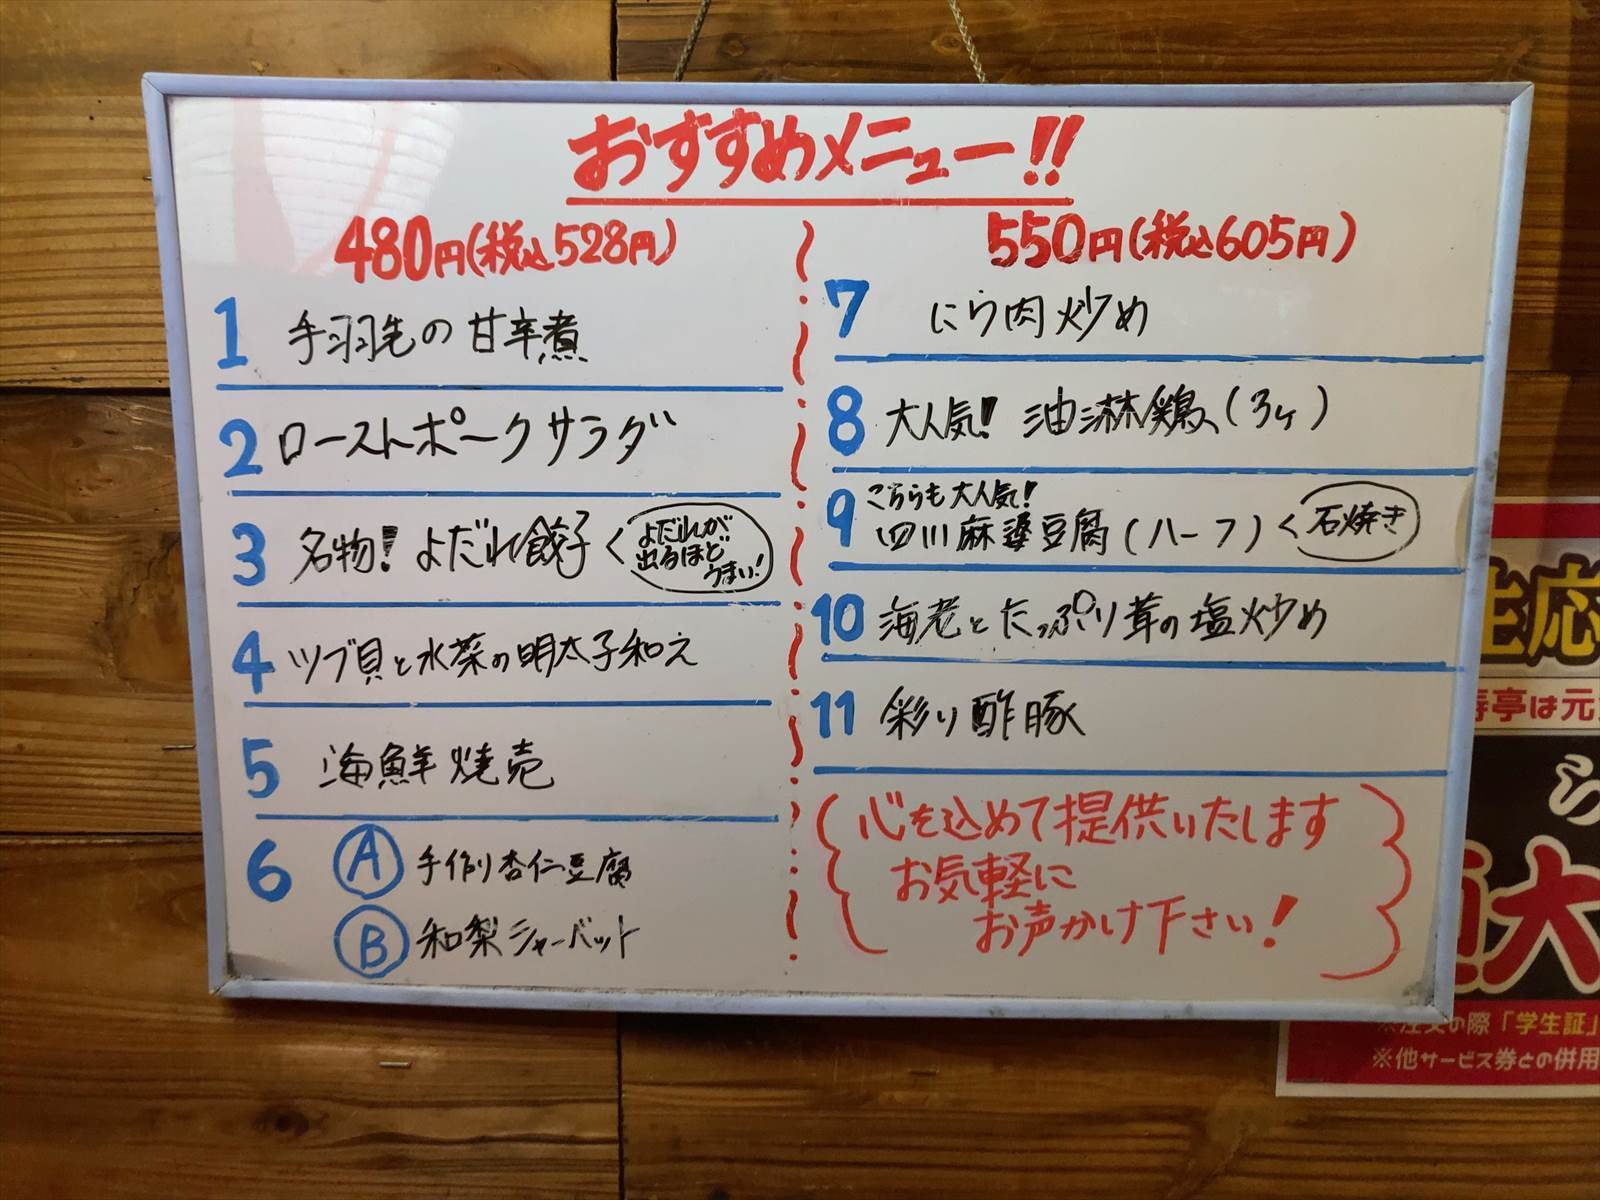 おすすめメニュー!!
480円(税込528円)
1 手羽先の甘辛煮
2 ローストポークサラダ
3 名物!よだれ餃子
よだれが
出るほど
うまい!
4 ツブ貝と水菜の明太子和え
5 海鮮焼売
6 A 手作り杏仁豆腐
B 和梨シャーベット
550円(税込605円)
7 にら肉炒め
8 大人気!油淋鶏(3ヶ)
こちらも大人気!
9 四川麻婆豆腐(ハーフ)
石焼き
10 海老とたっぷり茸の塩炒め
11 彩り酢豚
心を込めて提供いたします
お気軽に
お声かけ下さい!
生応
寿亭は元
大
※注文の際「学生証」
※他サービス券との併用